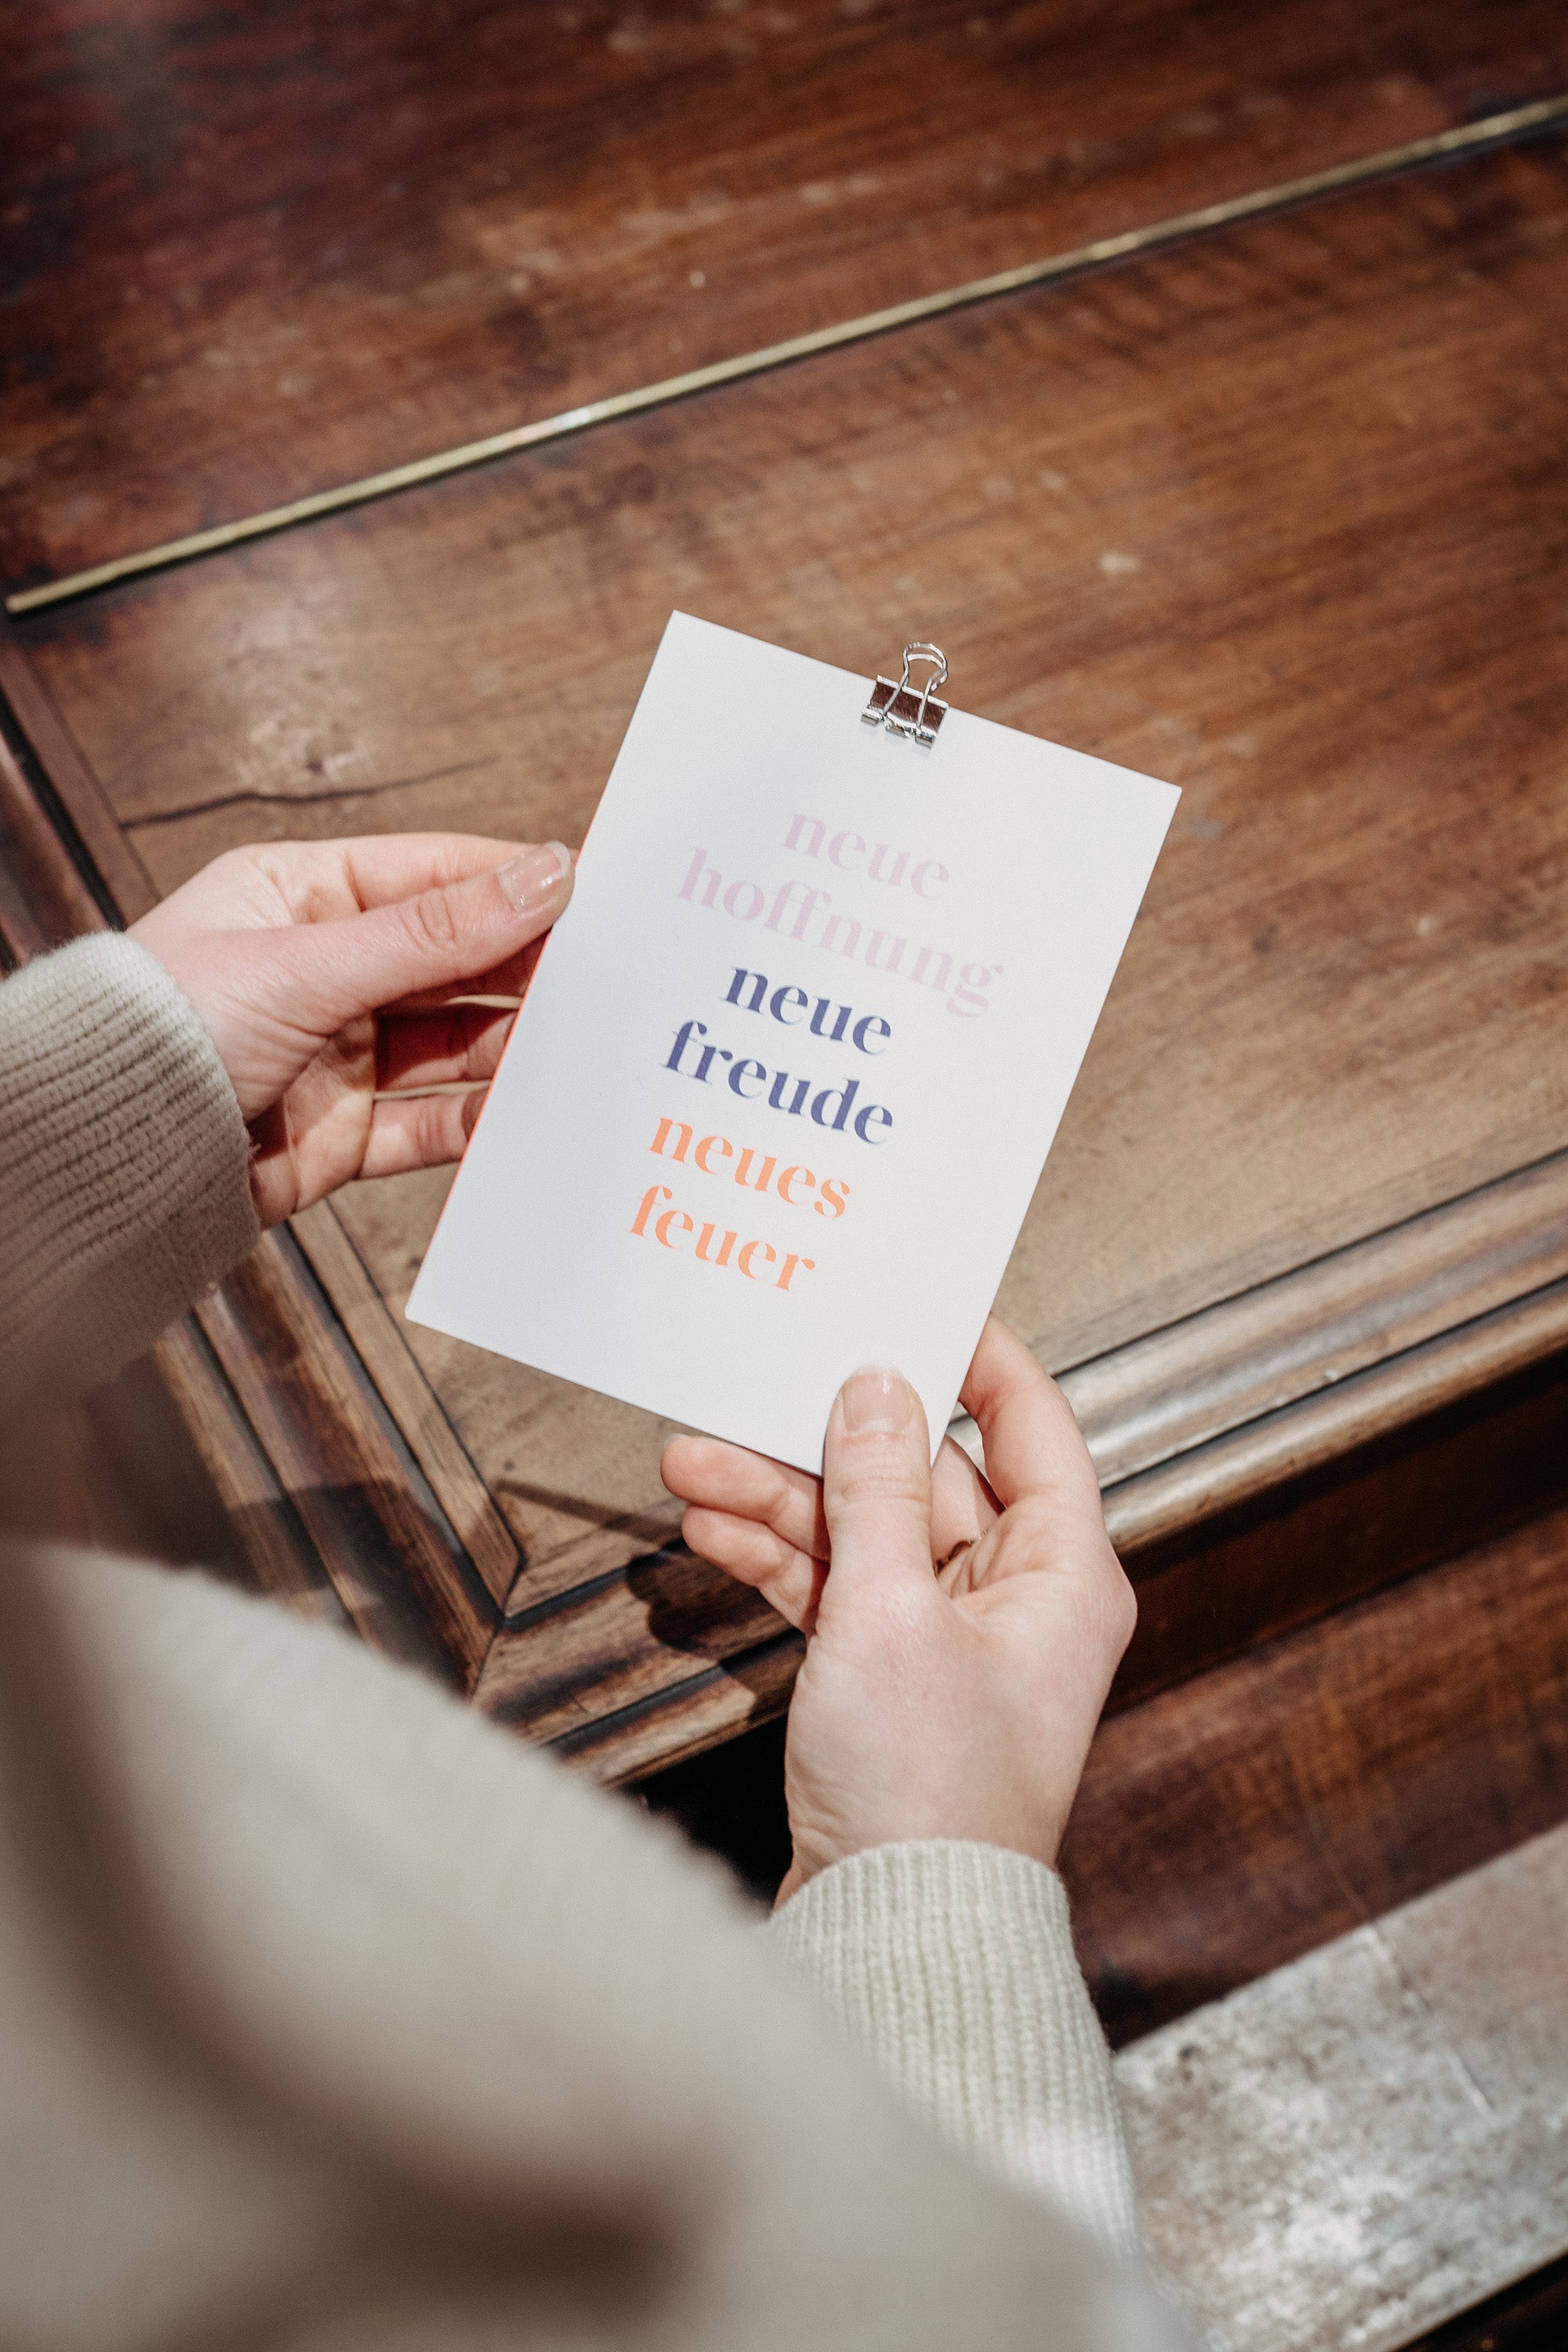 neue
hoffnung
neue
freude
neues
feuer